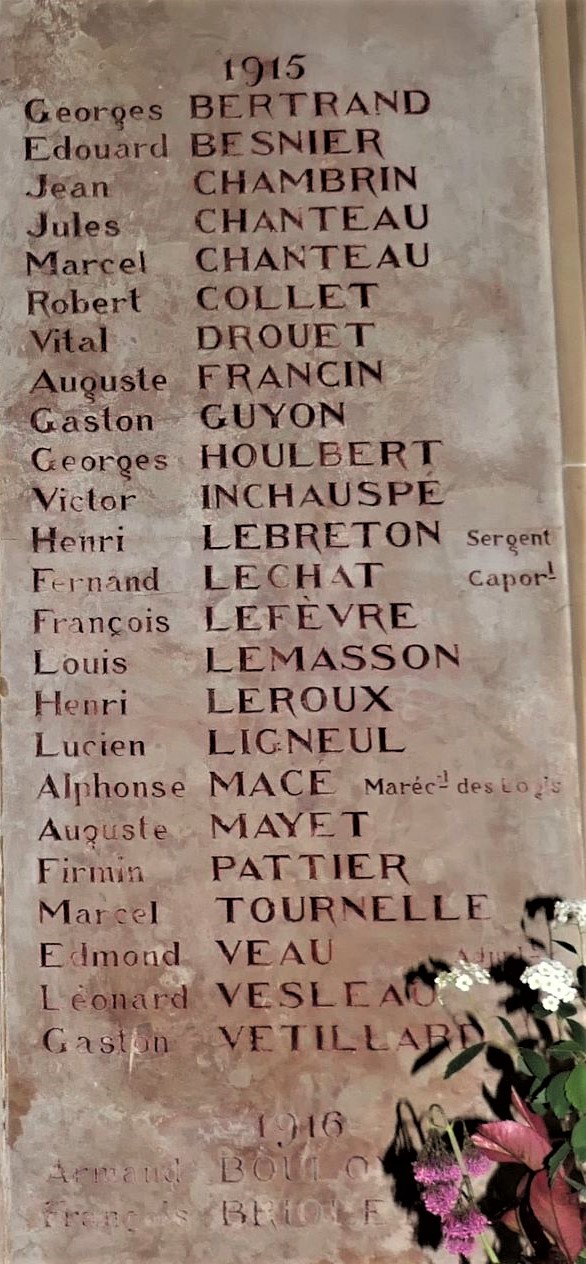 1915
Georges BERTRAND
Edouard BESNIER
Jean CHAMBRIN
Jules CHANTEAU
Marcel CHANTEAU
Robert COLLET
Vital DROUET
Auguste FRANCIN
Gaston GUYON
Georges HOULBERT
Victor INCHAUSPÉ
Henri LEBRETON Sergent
Fernand LECHAT Capor.l
François LEFÈVRE
Louis LEMASSON
Henri LEROUX
Lucien LIGNEUL
Alphonse MACÉ Maréc.l des Logis
Auguste MAYET
Firmin PATTIER
Marcel TOURNELLE
Edmond VEAU
Léonard VESLEAU
Gaston VETILLARD
1916
Armand
François